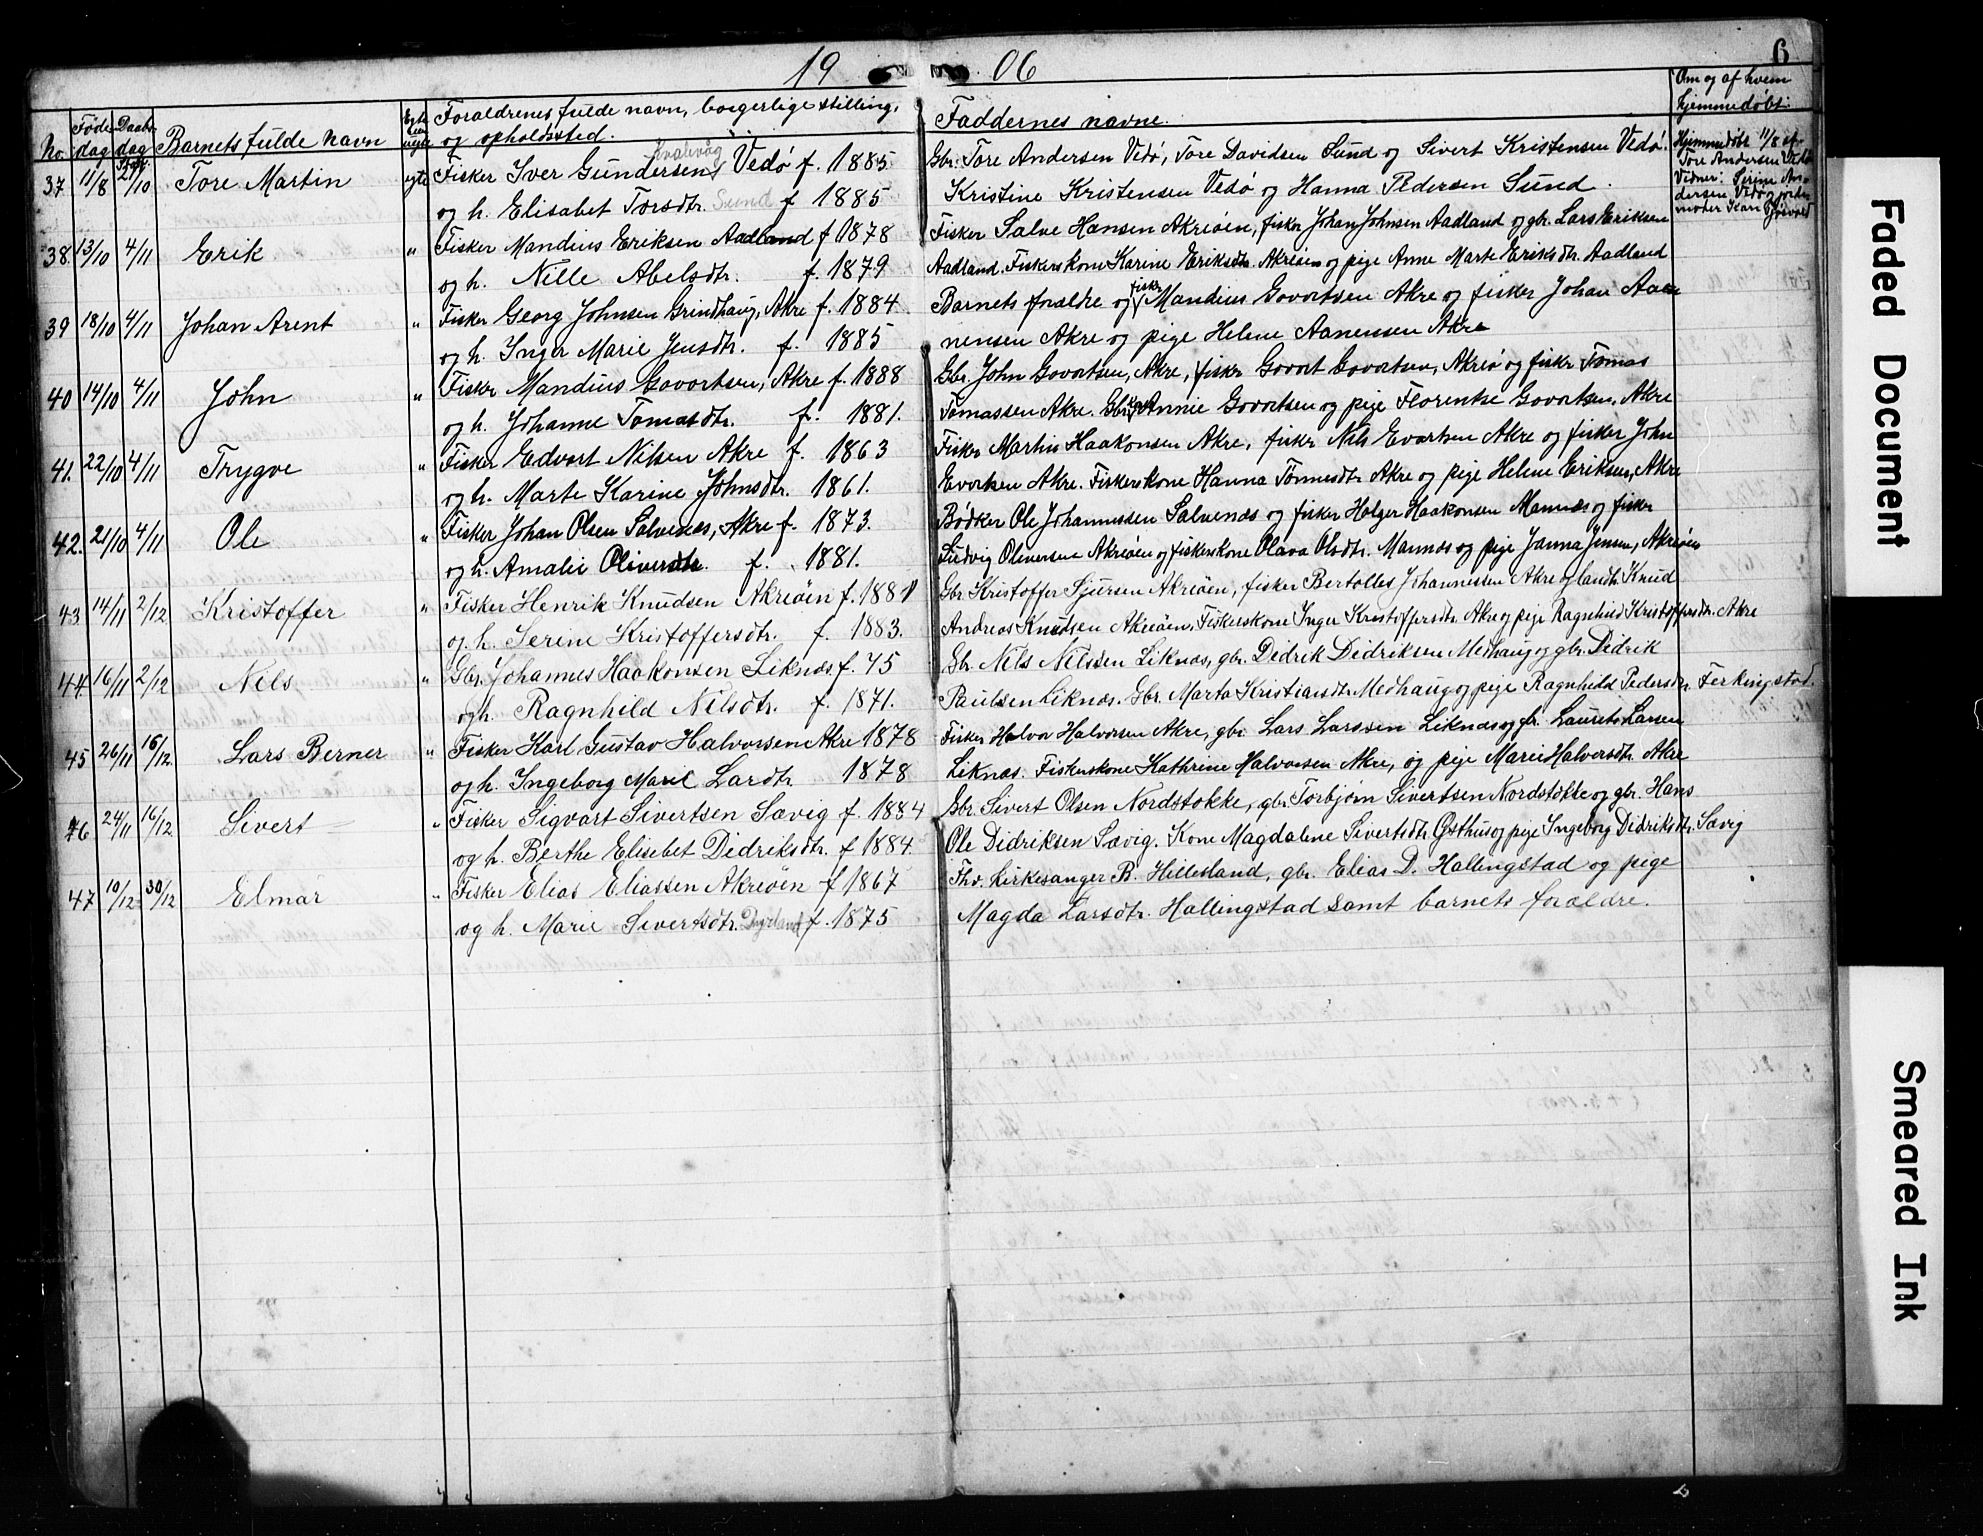 19 06
6
No.Føde dag Daabs dag Barnets fulde navn Egte eller uegte Foraldrenes fulde navn, borgerlige stilling, og opholdssted. Faddernes navne. Om og af hvem hjemmedøbt.
37 11/8 /10 Tore Martin egte Fisker Iver Gundersen Kvalavåg Vedø f. 1885 Gbr. Tore Andersen Vedø, Tore Davidsen Sund og Sivert Kristensen Vedø. Hjemmedøbt 11/8 af Tore Andersen Vedø
og h. Elisabet Torsdtr. Sund f 1885 Kristine Kristensen Vedø og Hanna Pedersen Sund. Vidner: Sirine Andersen Vedø og jordemoder Kari
38. 13/10 4/11 Erik " Fisker Mandius Eriksen Aadland f 1878 Fisker Salve Hansen Akreøen, fisker Johan Johnsen Aadland og gbr. Lars Eriksen
og h. Nille Abelsdtr. f. 1879 Aadland. Fiskerskone Karine Eriksdtr. Akreøen og pige Anne Marte Eriksdtr. Aadland
39 18/10 4/11 Johan Arent " Fisker Georg Johnsen Grindhaug, Akre f. 1884 Barnets forældre og fisker Mandius Govortsen Akre og fisker Johan Aane
og h. Inger Marie Jensdtr. f. 1885 nensen Akre og pige Helene Aanensen Akre
40 14/10 4/11 John " Fisker Mandius Govortsen, Akre f. 1888 Gbr. John Govortsen, Akre, fisker Govort Govortsen, Akreø og fisker Tomas
og h. Johanne Tomasdtr. f. 1881. Tomassen Akre. Gbr.k. Annie Govortsen og pige Florentse Govortsen, Akre
41. 22/10 4/11 Trygve " Fisker Edvart Nilsen Akre f. 1863 Fisker Martin Haakonsen Akre, fisker Nils Evartsen Akre og fisker John
og h. Marte Karine Johnsdtr. 1861. Evortsen Akre. Fiskerskone Hanna Tønnesdtr Akre og pige Helene Eriksen, Akre
42. 21/10 4/11 Ole " Fisker Johan Olsen Salvenes, Akre f. 1873. Bødker Ole Johannessen Salvenæs og fisker Holger Haakonsen Mannæs og fisker
og h. Amalie Oliversdtr. f. 1881. Ludvig Oliversen Akreøen og fiskerskone Olava Olsdtr. Mannæs og pige Janna Jensen, Akreøen
43 14/11 2/12 Kristoffer " Fisker Henrik Knudsen Akreøen f. 1881 Gbr. Kristoffer Sjursen Akreøen, fisker Bertolles Johannessen Akre og landh. Knud
og. h. Serene Kristoffersdtr. f. 1883. Andreas Knudsen Akreøen. Fiskerskone Inger Kristoffersdtr. Akre og pige Ragnhild Kristoffersdtr. Akre
44. 16/11 2/12 Nils " Gbr. Johannes Haakonsen Liknæs f. 75 Gbr. Nils Nilssen Liknæs, gbr. Didrik Didriksen Medhaug og gbr. Didrik
og h. Ragnhild Nilsdtr. f. 1871. Paulsen Liknæs. Gbr. Marta Kristiansdtr. Medhaug og pige Ragnhild Pedersdtr. Ferkingstad.
45 26/11 16/12. Lars Berner " Fisker Karl Gustav Halvorsen Akre 1878 Fisker Halvor Halvorsen Akre, gbr. Lars Larssen Liknæs og gbr. Laurits Larsen
og h. Ingeborg Marie Larsdtr. 1878 Liknæs. Fiskerskone Kathrine Halvorsen Akre, og pige Marie Halvorsdtr. Akre
46 24/11 16/12 Sivert " Fisker Sigvart Sivertsen Sævig f. 1884 Gbr. Sivert Olsen Nordstokke, gbr. Torbjørn Sivertsen Nordstokke og gbr. Hans
og h. Berthe Elisebet Didriksdtr. f 1884. Ole Didriksen Sævig. Kone Magdalene Sivertsdtr. Østhus og pige Ingeborg Didriksdtr. Sævig
47 10/12 30/12 Elmar " Fisker Elias Eliassen Akreøen f 1867 Fhv. kirkesanger B. Hillesland, gbr. Elias D. Hallingstad og pige
og h. Marie Sivertsdtr. f. 1875 Magda Larsdtr. Hallingstad samt barnets forældre.
Faded Document
Smeared Ink